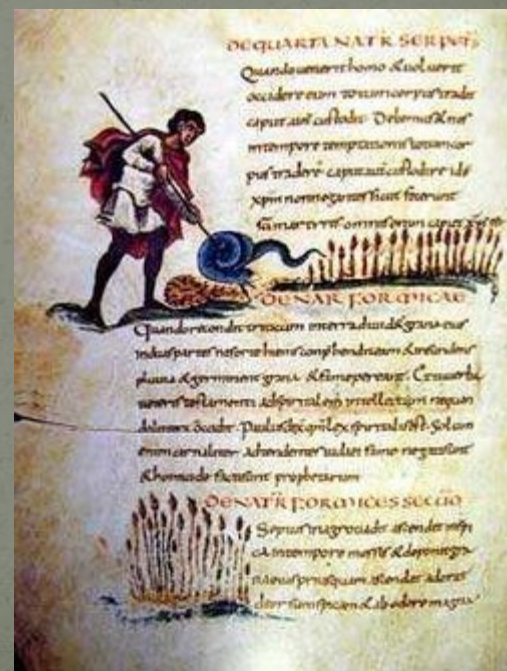 DE QUARTA NAT R SERPETIS
Quando venerit homo & voluerit
occidere eum totum corpus tradit
caput aut custodit Debemus & nos
in tempore temptationis totum cor
pus tradere caput aut custodire ide
xpm non negantes sicut fecerunt
sci martyris omnis enim caput xps est
DE NAT R FORMICAE
Quando recondet triticum in terra dividet grana eius
in duas partes ne forte hiems conphendat eum & infundens
pluvia & germinent grana & fame pereant. Et tu verba
veteris testamenti ad spiritalem intellectum
occidat Paulus dix qm lex spiritalis est Solum
enim carnaliter adtendentes iudaei fame negati sunt
& homicidae facti sunt prophetarum
DE NAT R FORMICES SECUDO
Sepius in agro vadit ascendet in spi
ca in tempore messis & deponet gra
na eius priusquam ascendet
spicam & ab odore